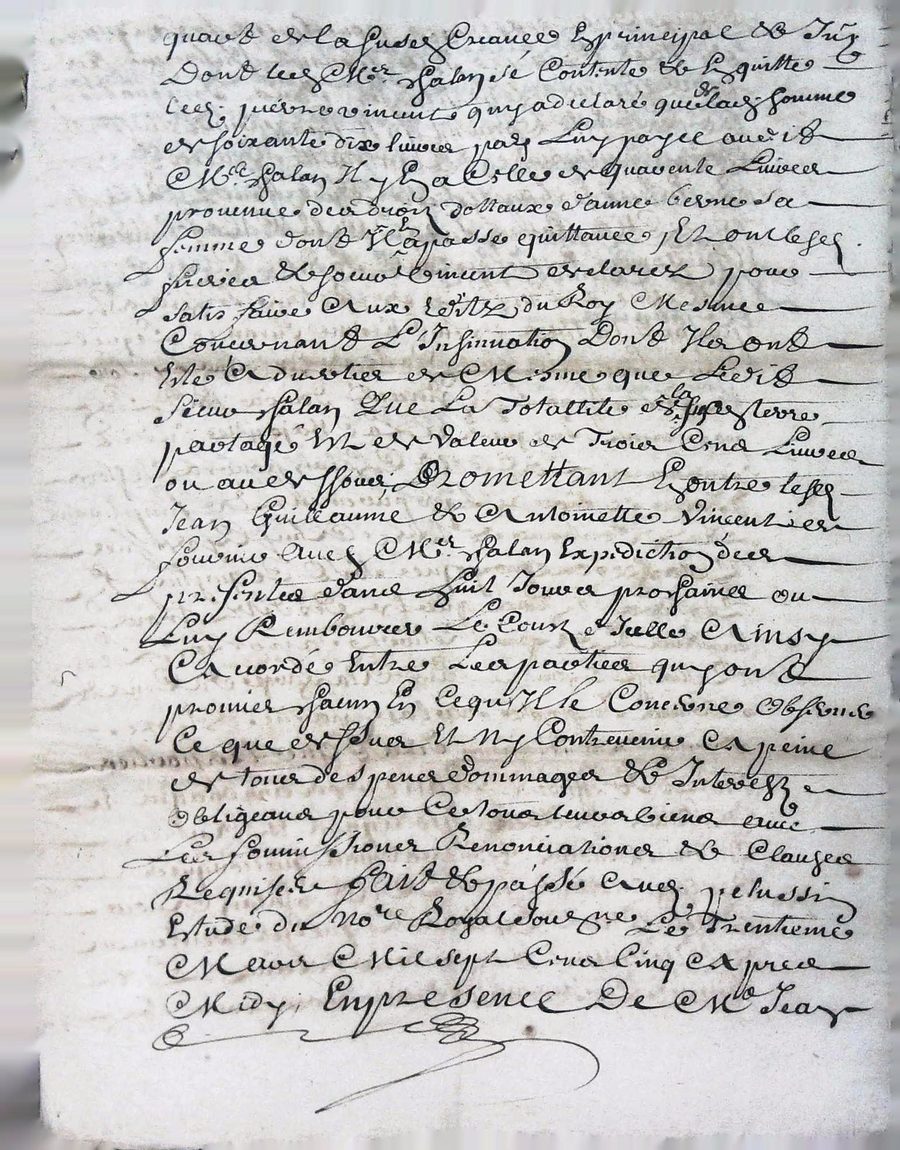 quart de la susd Creance En principal & Int
Dont led Mr Jalan sé Contente & Enquitte
led vincent quy a declaré que de lad somme
de soixante dix livres payée audit
Mre Jalan Il y En a Celle de quarente Livres
provenue des droits dottaux d'anne sa
femme dont Il En a passé quittance, Et ont lesd
vincent declaré pour
satisfaire Aux Edits du Roy Mesmes
Concernant L'Insinuation Dont Ils ont
Esté Advertis de Mesme que Ledit
sieur Jalan Que La Totallité de la susd terre
partagé Est de valeur de Trois Cens Livres
ou au dessous, Promettant En outre lesd
Jean Guillaume & Antoinette vincent de
fournir aud Mre Jalan Expediction des
presentes dans huit Jours prochaines ou
Luy Rembourcer Le Cout d'Icelle Ainsy
Accordé Entre Les parties quy ont
promis Chacun En Ce qu'Il le Concerne Observer
Ce que dessus Et N'y Contrevenir A peine
de tous despens dommages & Interestz
Obligeans pour Ce tous leurs biens avec
Les soumissions Renonciations & Clauses
Requises fait & passé Aud pelussin
Estude du Nore Royal sousne Le Trentieme
Mars Mil sept Cens Cinq Apres
Midy, En presence De Me Jean